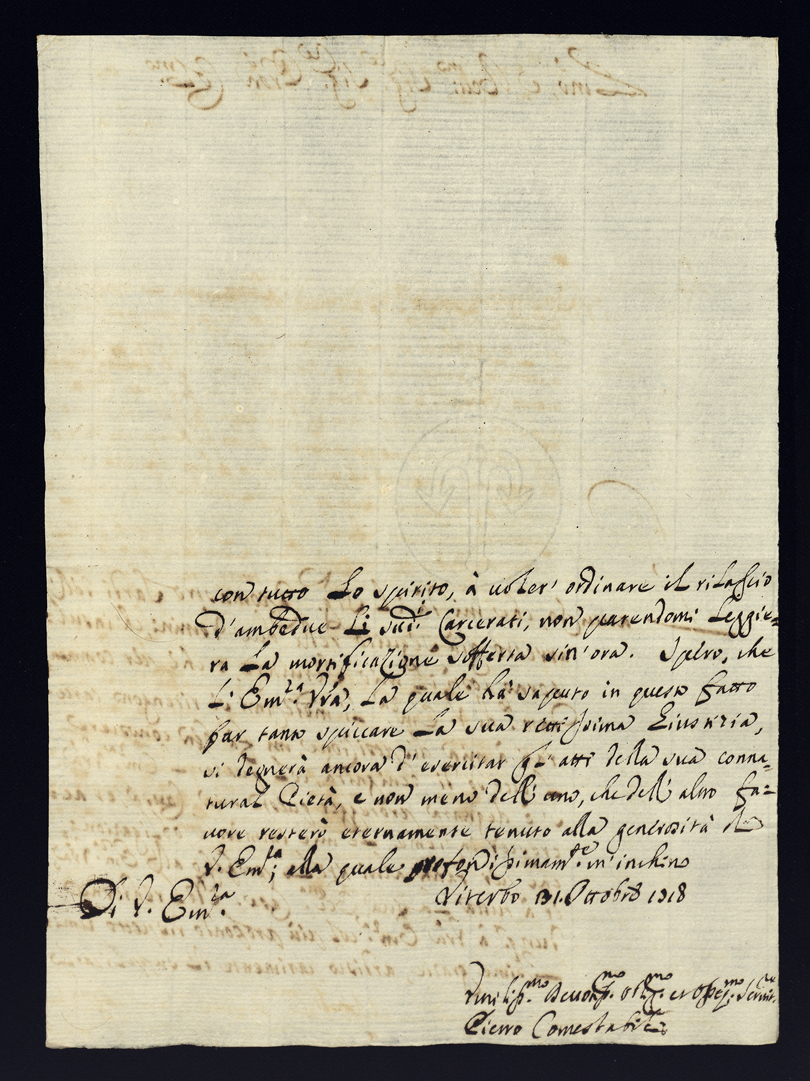 con tutto Lo spirito, à voler' ordinare il rilascio
d'ambedue Li sud.ti Carcerati, non parendomi Leggie=
ra La mortificazione sofferta sin'ora. Spero, che
L'Em.za Vr̃a, La quale hà saputo in questo fatto
far tanto spiccare La sua rettissima Giustizia,
si degnerà ancora d'esercitar gl'atti della sua conna=
tural Pietà, e non meno dell'uno, che dell'altro fa=
uore resterò eternamente tenuto alla generosità di
V. Em.za; alla quale profondissimam.te m'inchino
Viterbo 31. Ottobre 1718
Di V. Em.za
Vmiliss.mo Deuotis.mo Oblig.mo et Osseq.mo Seruit.re
Pietro Comestabile